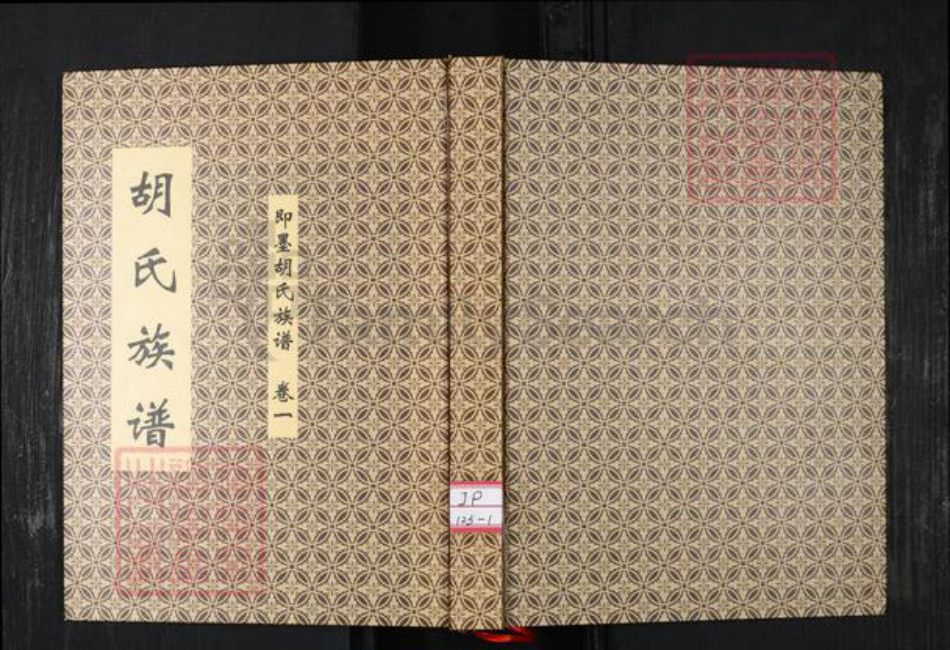 胡氏族谱
即墨胡氏族谱 卷一
JP
125-1